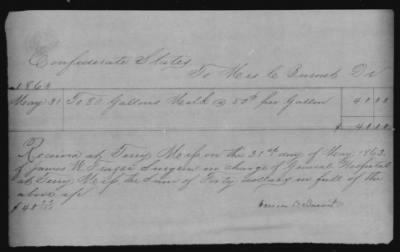 Confederate States
To Mrs C Burnet Dr
1863
May 31 To 80 Gallons Milk @ 50¢ per Gallon 40 00
$ 40.00
Received at Terry Miss on the 31st day of May 1863
of James W. Surgeon in charge of General Hospital
at Terry Miss, the sum of Forty Dollars in full of the
above a/c
$40